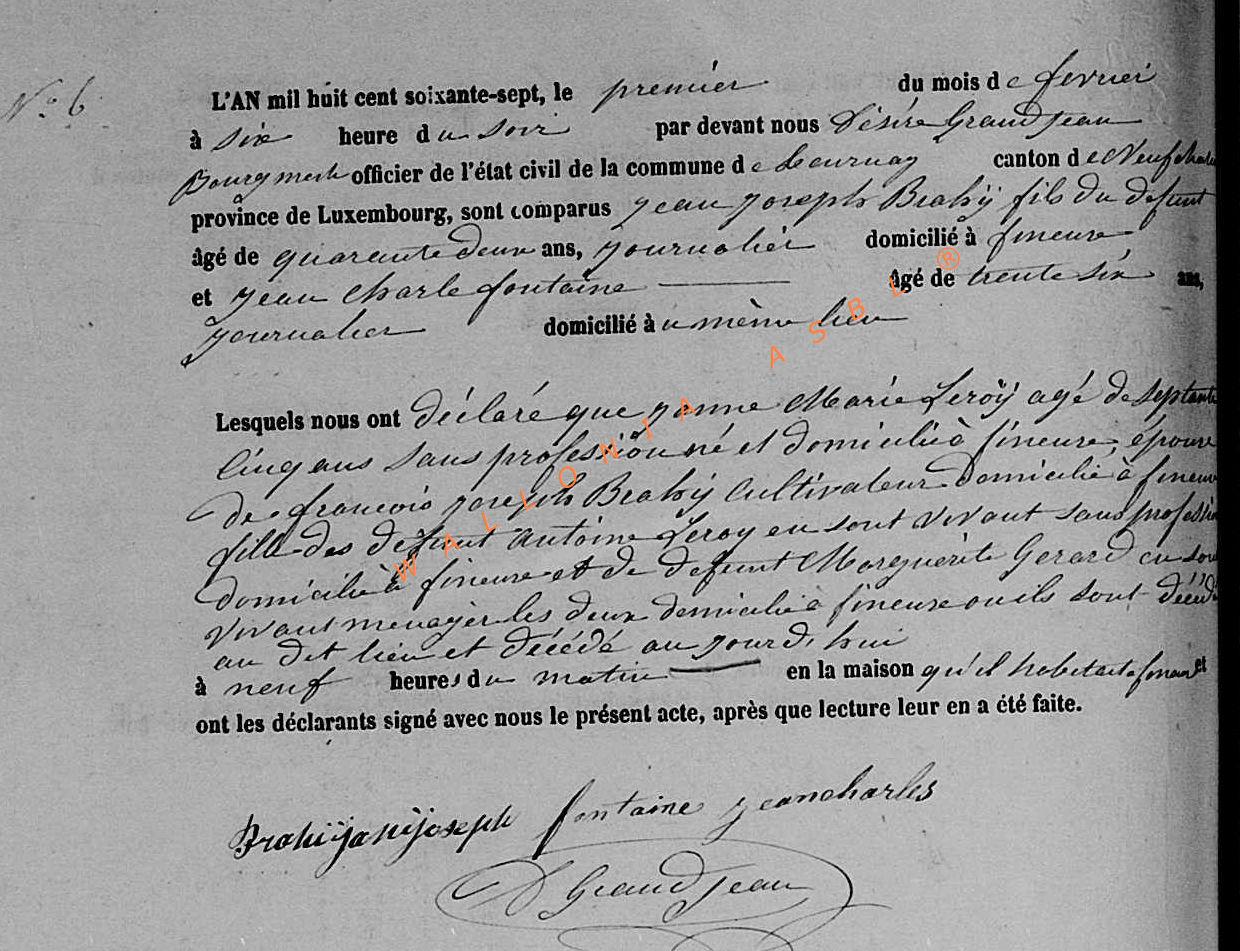 N° 6
L'AN mil huit cent soixante-sept, le premier du mois de fevrier
à six heure du soir par devant nous Désiré Grandjean
Bourgmestre officier de l'état civil de la commune de Tournay canton de Neufchateau
province de Luxembourg, sont comparus Jean Joseph Brahÿ fils du defunt
âgé de quarante deux ans, journalier domicilié à fineuse
et Jean Charle fontaine âgé de trente six ans,
journalier domicilié à u même lieu
Lesquels nous ont déclaré que Janne Marie Leroÿ agé de septante
Cinq ans sans profession né et domicilié à fineuse épouse
de francois Joseph Brahÿ Cultivateur domicilié à fineuse
fille des defunt Antoine Leroy en sont vivant sans profession
domicilié à fineuse et de defunt Marguerite Gerard en son
vivant menagér les deux domicilié à fineuse ou ils sont décédé
au dit lieu et décédé au jourd'hui
à neuf heures du matin en la maison qu'il habitait a et
ont les déclarants signé avec nous le présent acte, après que lecture leur en a été faite.
Brahÿ joseph fontaine jeancharles
D Grandjean
WALLONIA ASBL ®